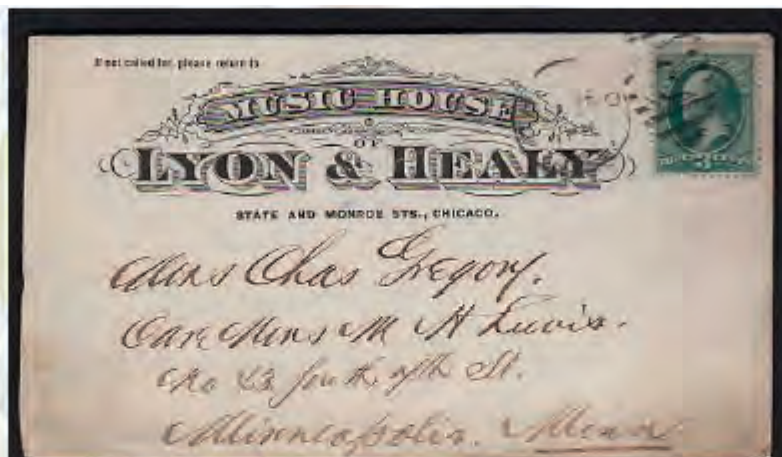 If not called for, please return to
MUSIC HOUSE
OF
LYON & HEALY
STATE AND MONROE STS., CHICAGO.
3 CENTS
Mrs Chas Gregory.
Care Mrs M H Lewis.
No 23 South St.
Minneapolis. Minn